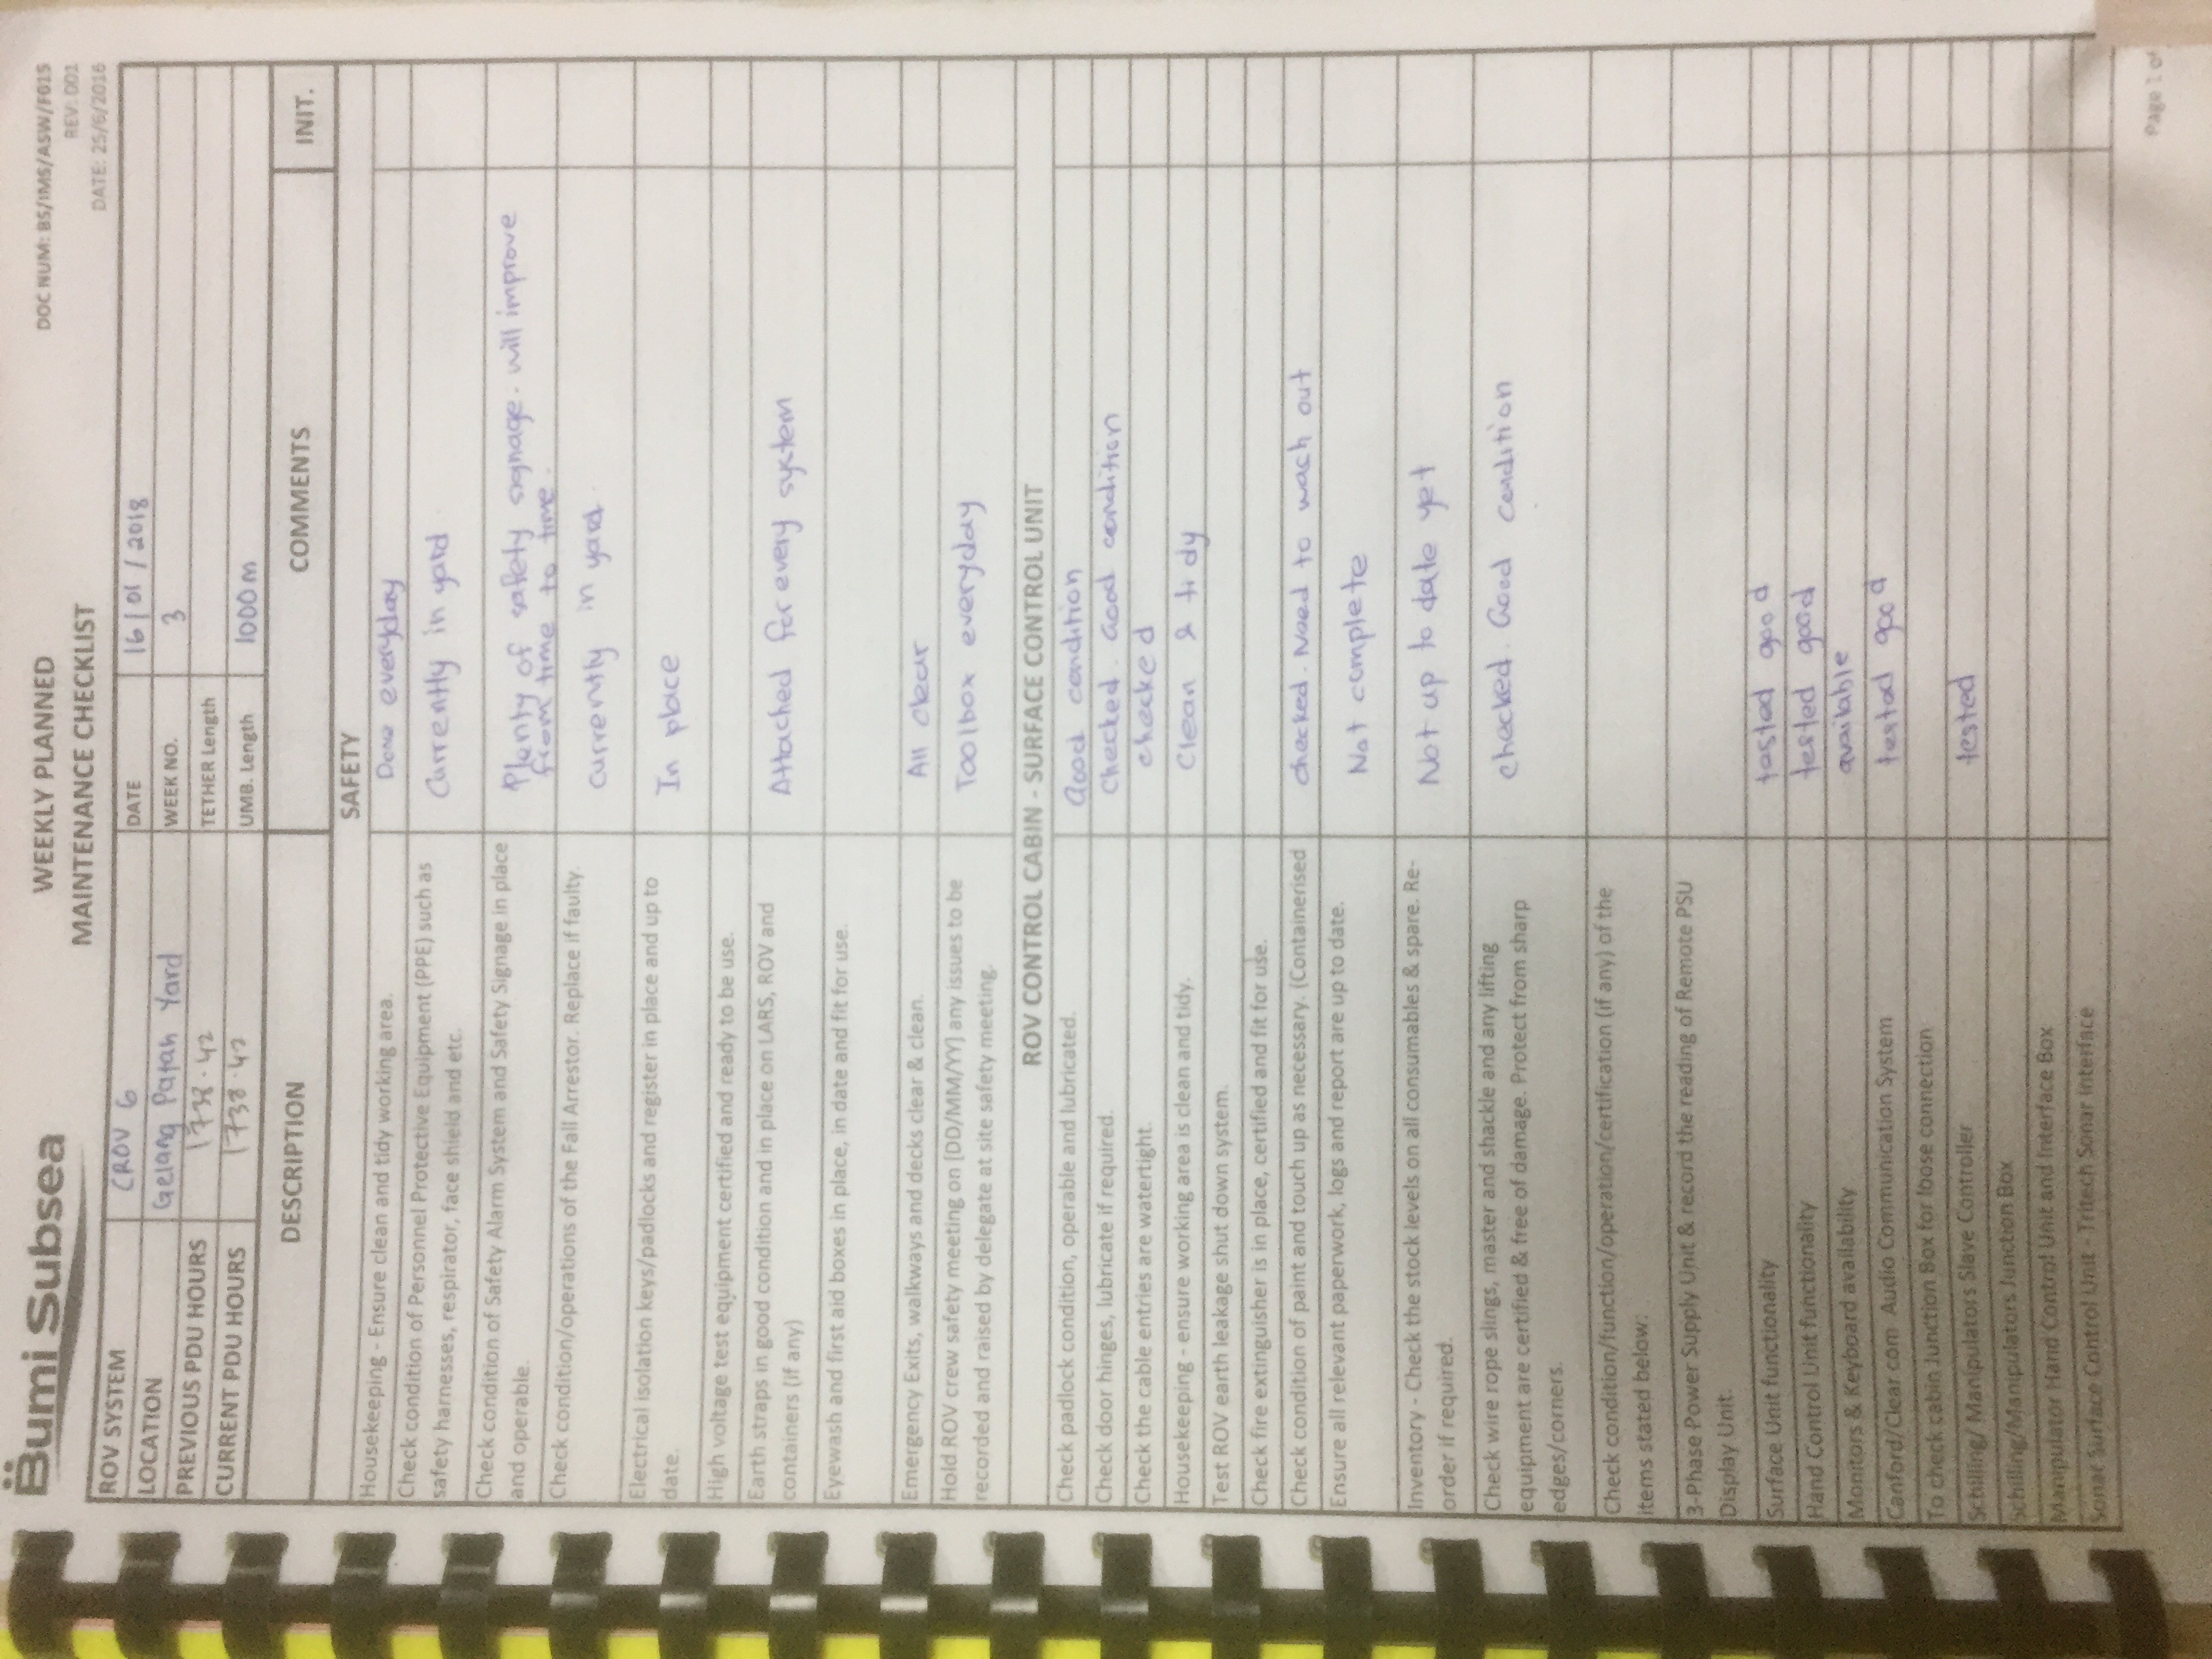 Bumi Subsea
WEEKLY PLANNED
MAINTENANCE CHECKLIST
DOC NUM: BS/IMS/ASW/F015
REV: 001
DATE: 25/6/2016
ROV SYSTEM CROV 6 DATE 16/01/2018
LOCATION Gelang Patah Yard WEEK NO. 3
PREVIOUS PDU HOURS 1738.42 TETHER Length
CURRENT PDU HOURS 1738.42 UMB. Length 1000m
DESCRIPTION COMMENTS INIT.
SAFETY
Housekeeping - Ensure clean and tidy working area. Done everyday
Check condition of Personnel Protective Equipment (PPE) such as
safety harnesses, respirator, face shield and etc. Currently in yard
Check condition of Safety Alarm System and Safety Signage in place
and operable. Plenty of safety signage. will improve
from time to time.
Check condition/operations of the Fall Arrestor. Replace if faulty.
currently in yard.
Electrical isolation keys/padlocks and register in place and up to
date. In place
High voltage test equipment certified and ready to be use.
Earth straps in good condition and in place on LARS, ROV and
containers (if any) Attached for every system
Eyewash and first aid boxes in place, in date and fit for use.
Emergency Exits, walkways and decks clear & clean. All clear
Hold ROV crew safety meeting on [DD/MM/YY] any issues to be
recorded and raised by delegate at site safety meeting. Toolbox everyday
ROV CONTROL CABIN - SURFACE CONTROL UNIT
Check padlock condition, operable and lubricated. Good condition
Check door hinges, lubricate if required. checked. Good condition
Check the cable entries are watertight. checked
Housekeeping - ensure working area is clean and tidy. Clean & tidy
Test ROV earth leakage shut down system.
Check fire extinguisher is in place, certified and fit for use.
Check condition of paint and touch up as necessary. (Containerised checked. Need to wash out
Ensure all relevant paperwork, logs and report are up to date.
Not complete
Inventory - Check the stock levels on all consumables & spare. Re-
order if required. Not up to date yet
Check wire rope slings, master and shackle and any lifting
equipment are certified & free of damage. Protect from sharp checked. Good condition
edges/corners.
Check condition/function/operation/certification (if any) of the
items stated below:
3-Phase Power Supply Unit & record the reading of Remote PSU
Display Unit.
Surface Unit functionality tested good
Hand Control Unit functionality tested good
Monitors & Keyboard availability available
Canford/Clear com Audio Communication System tested good
To check cabin Junction Box for loose connection
Schilling/ Manipulators Slave Controller tested
Schilling/Manipulators Junction Box
Manipulator Hand Control Unit and Interface Box
Sonar Surface Control Unit - Tritech Sonar Interface
Page 1 of